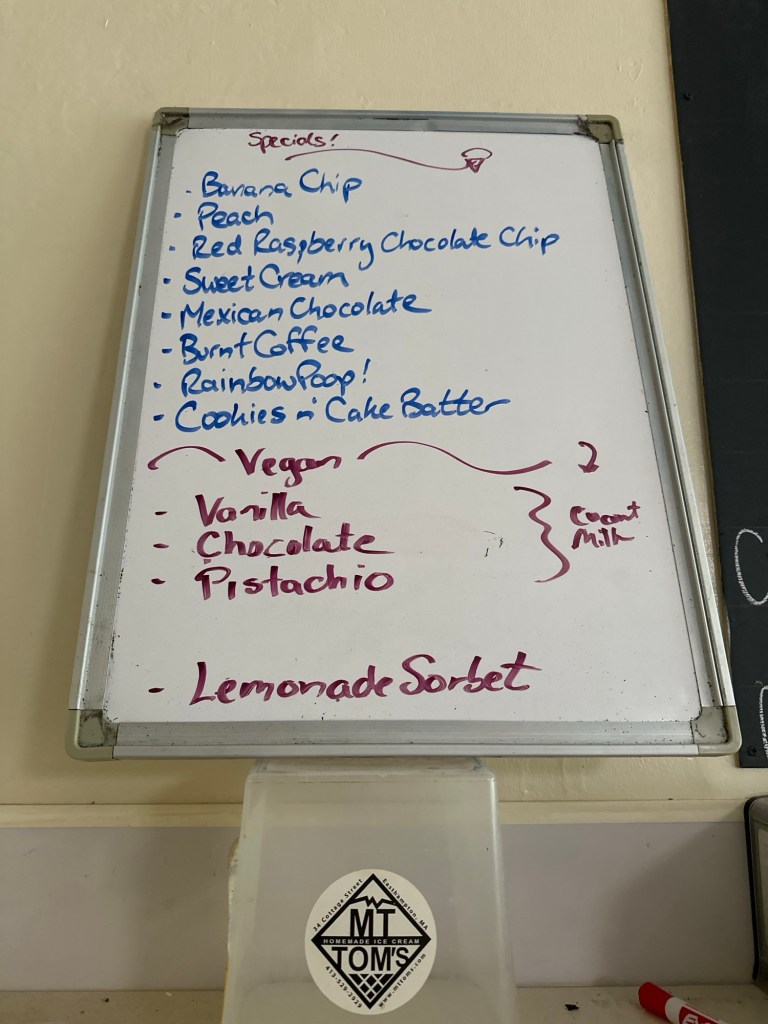 Specials!
- Banana Chip
- Peach
- Red Raspberry Chocolate Chip
- Sweet Cream
- Mexican Chocolate
- Burnt Coffee
- Rainbow Poop!
- Cookies n' Cake Batter
Vegan
- Vanilla
- Chocolate
- Pistachio
Milk
- Lemonade Sorbet
24 Cottage Street Easthampton, MA
MT
HOMEMADE ICE CREAM
TOM'S
413-529-2929 www.mttoms.com